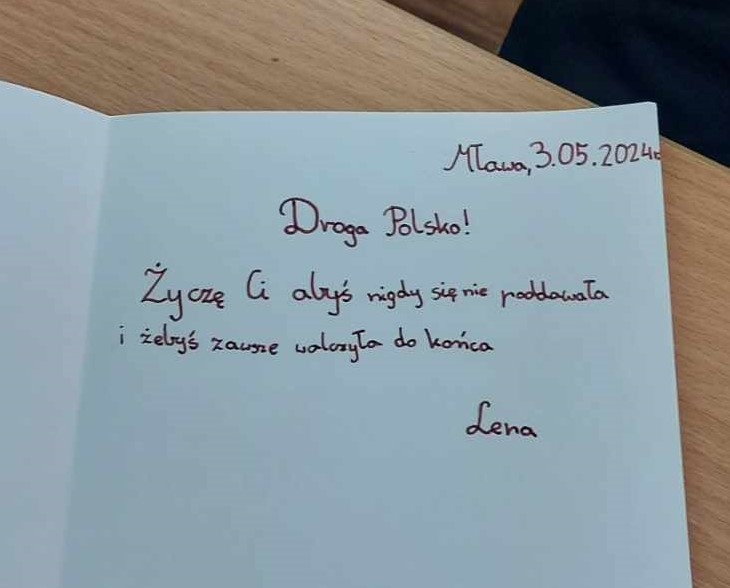 Mława, 3.05.2024r
Droga Polsko!
Życzę Ci abyś nigdy się nie poddawała
i żebyś zawsze walczyła do końca
Lena